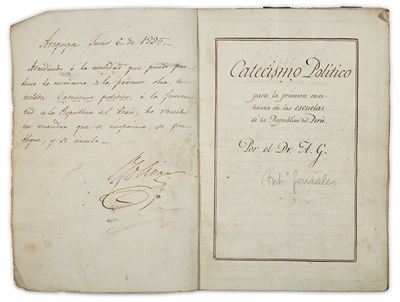 Arequipa Junio 6. de 1825.
Atendiendo á la utilidad que puede
la enseñanza de la obra,
titulada Catecismo politico, á la juventud
de la Republica del Perú, he venido
en mandar que se imprima, se
y se venda.
Bolívar
Catecismo Politico
para la primera ense-
ñanza de las escuelas
de la Republica del Perú.
Por el Dr. A. G.
Anto. Gonzalez